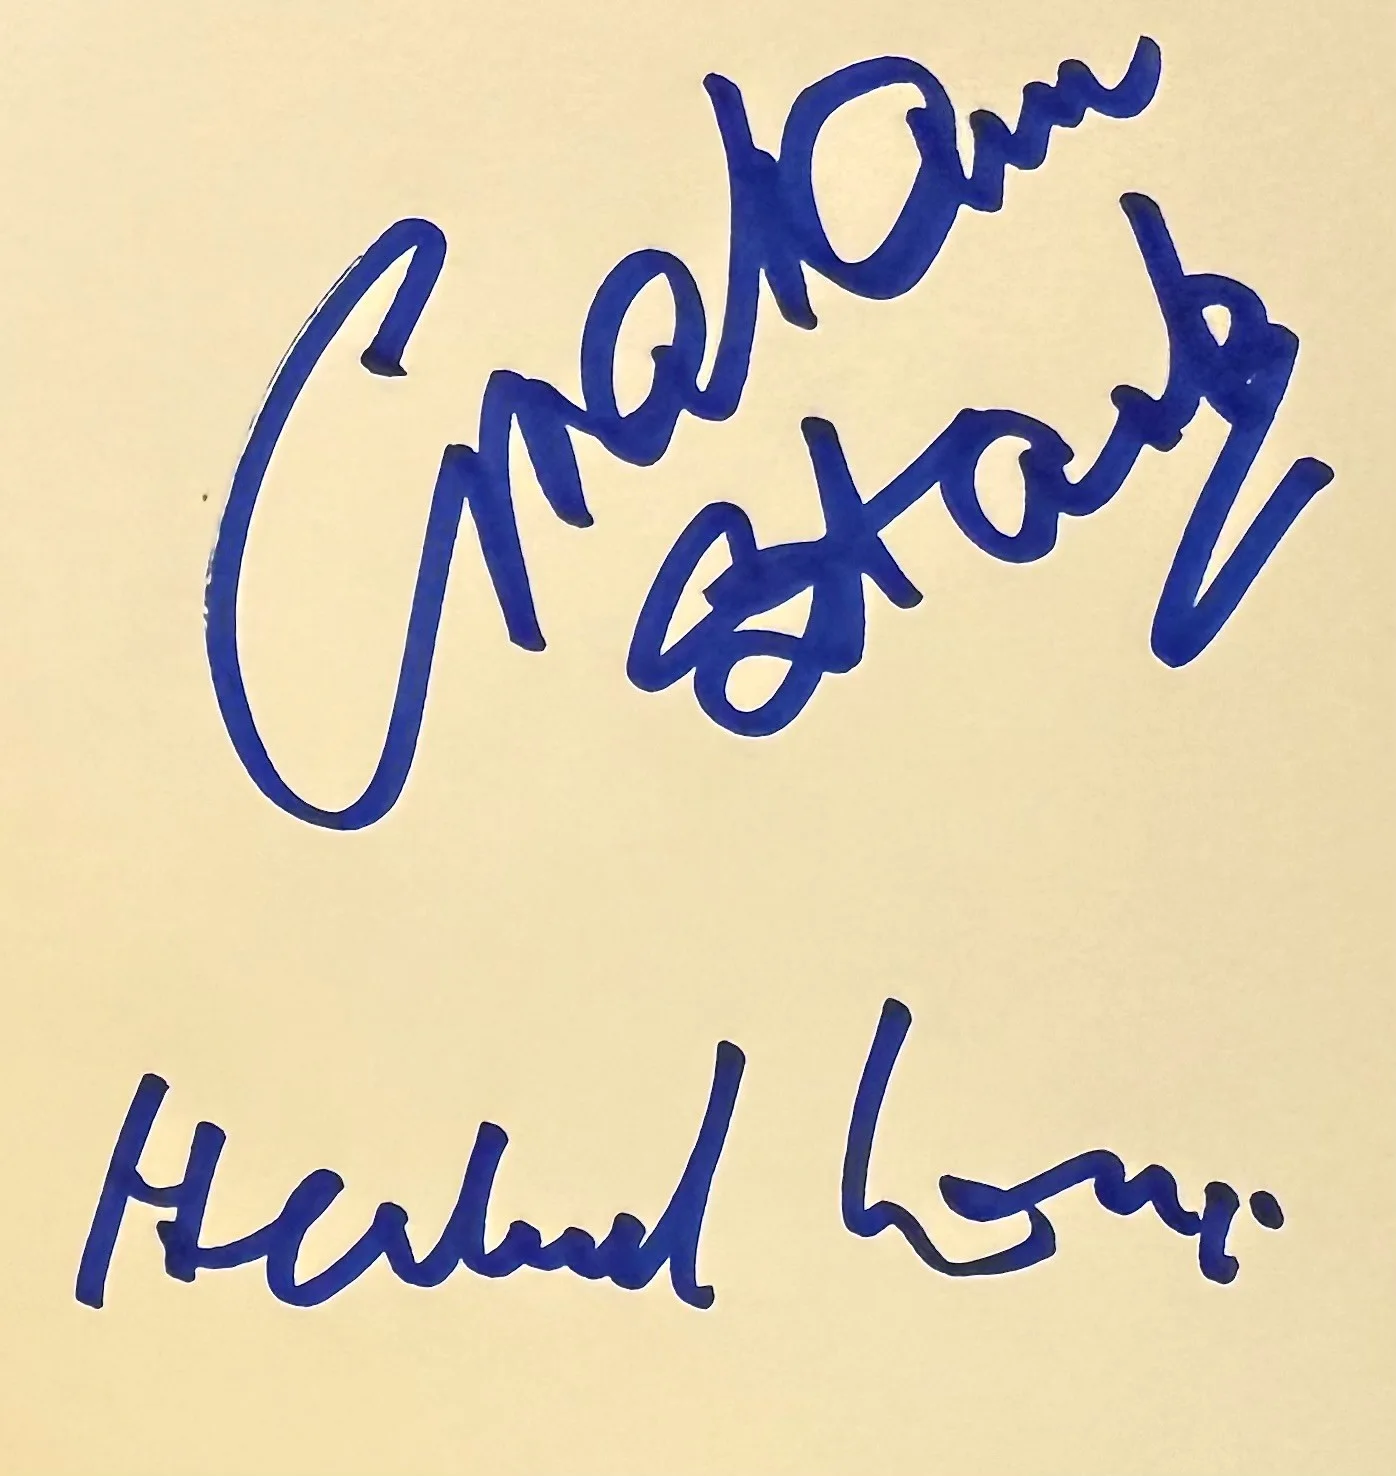 Graham
Stark
Herbert Lom